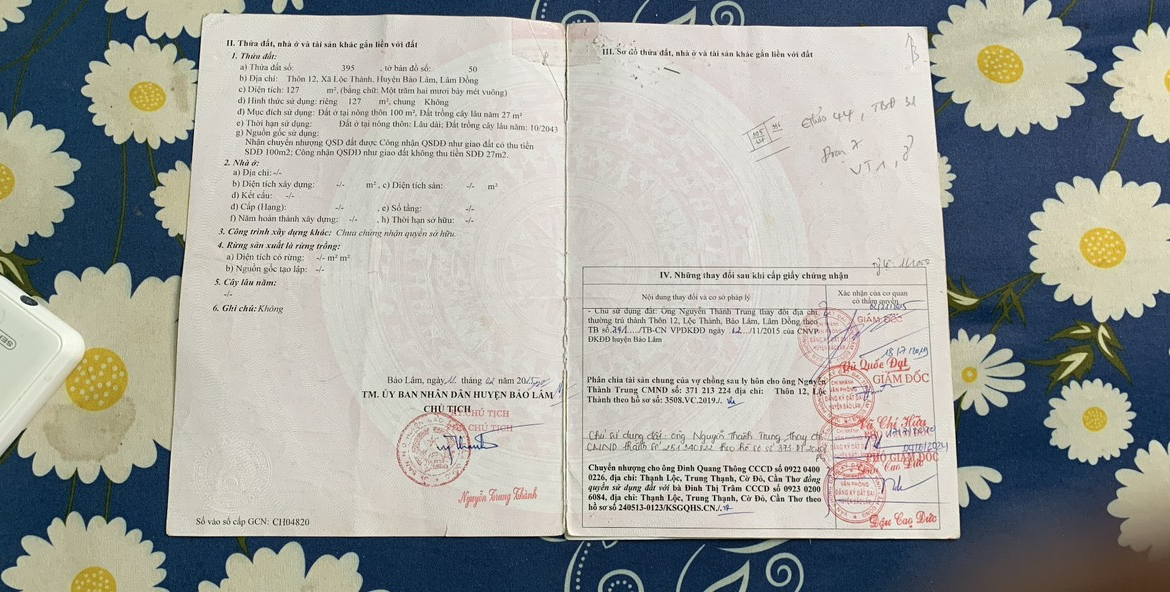 II. Thửa đất, nhà ở và tài sản khác gắn liền với đất
1. Thửa đất:
a) Thửa đất số: 395 , tờ bản đồ số: 50
b) Địa chỉ: Thôn 12, Xã Lộc Thành, Huyện Bảo Lâm, Lâm Đồng
c) Diện tích: 127 m², (bằng chữ: Một trăm hai mươi bảy mét vuông)
d) Hình thức sử dụng: riêng 127 m², chung Không
đ) Mục đích sử dụng: Đất ở tại nông thôn 100 m², Đất trồng cây lâu năm 27 m²
e) Thời hạn sử dụng: Đất ở tại nông thôn: Lâu dài; Đất trồng cây lâu năm: 10/2043
g) Nguồn gốc sử dụng:
Nhận chuyển nhượng QSD đất được Công nhận QSDĐ như giao đất có thu tiền
SDĐ 100m2; Công nhận QSDĐ như giao đất không thu tiền SDĐ 27m2.
2. Nhà ở:
a) Địa chỉ:-/-
b) Diện tích xây dựng: -/- m² , c) Diện tích sàn: -/- m²
d) Kết cấu: -/-
đ) Cấp (Hạng): -/- , e) Số tầng: -/-
f) Năm hoàn thành xây dựng: -/- , h) Thời hạn sở hữu: -/-
3. Công trình xây dựng khác: Chưa chứng nhận quyền sở hữu.
4. Rừng sản xuất là rừng trồng:
a) Diện tích có rừng: -/- m² m²
b) Nguồn gốc tạo lập: -/-
5. Cây lâu năm:
-/-
6. Ghi chú: Không
Bảo Lâm, ngày tháng năm 20
TM. ỦY BAN NHÂN DÂN HUYỆN BẢO LÂM
CHỦ TỊCH
KT. CHỦ TỊCH
PHÓ CHỦ TỊCH
Nguyễn Trung Thành
Số vào sổ cấp GCN: CH04820
III. Sơ đồ thửa đất, nhà ở và tài sản khác gắn liền với đất
thửa 44, TBĐ 31
Đoạn 7
VT1,
IV. Những thay đổi sau khi cấp giấy chứng nhận
Nội dung thay đổi và cơ sở pháp lý
Xác nhận của cơ quan
có thẩm quyền
- Chủ sử dụng đất: Ông Nguyễn Thành Trung thay đổi địa chỉ
thường trú thành Thôn 12, Lộc Thành, Bảo Lâm, Lâm Đồng theo
TB số 291..../TB-CN VPĐKĐĐ ngày .12.../11/2015 của CNVP
ĐKĐĐ huyện Bảo Lâm
GIÁM ĐỐC
18/7/2019
Vũ Quốc Đạt
Phân chia tài sản chung của vợ chồng sau ly hôn cho ông Nguyễn
Thành Trung CMND số: 371 213 224 địa chỉ: Thôn 12, Lộc
Thành theo hồ sơ số: 3508.VC.2019./.
GIÁM ĐỐC
CHI NHÁNH
VĂN PHÒNG
ĐĂNG KÝ ĐẤT ĐAI
HUYỆN BẢO LÂM
Chủ sử dụng đất: ông Nguyễn Thành Trung, Thay đổi
CMND thành số 251 340122 theo hồ sơ số 373
PHÓ GIÁM ĐỐC
Chuyển nhượng cho ông Đinh Quang Thông CCCD số 0922 0400
0226, địa chỉ: Thạnh Lộc, Trung Thạnh, Cờ Đỏ, Cần Thơ đồng
quyền sử dụng đất với bà Đinh Thị Trâm CCCD số 0923 0200
6084, địa chỉ: Thạnh Lộc, Trung Thạnh, Cờ Đỏ, Cần Thơ theo
hồ sơ số 240513-0123/KSGQHS.CN./.
VĂN PHÒNG
ĐĂNG KÝ ĐẤT ĐAI
Đậu Cao Đức